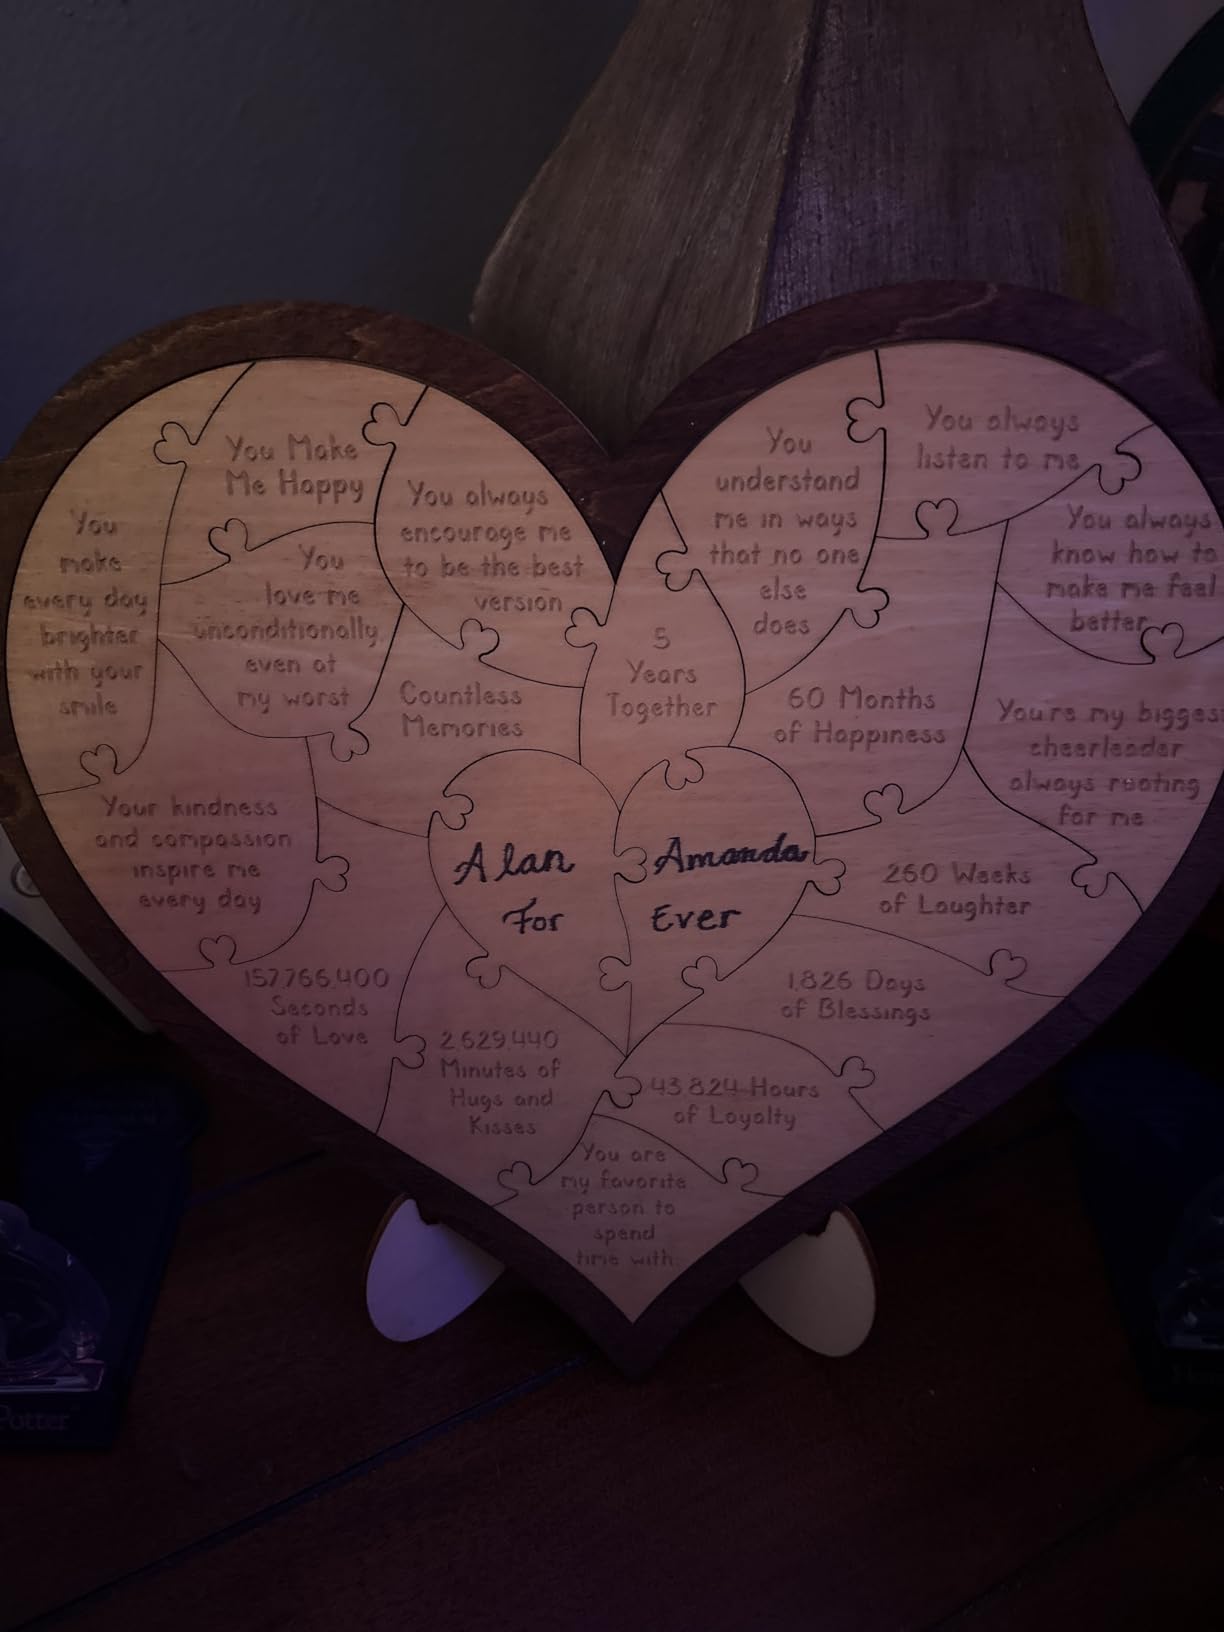 You Make
Me Happy
You
make
every day
brighter
with your
smile
You
love me
unconditionally
even at
my worst
You always
encourage me
to be the best
version
Countless
Memories
5
Years
Together
You
understand
me in ways
that no one
else
does
You always
listen to me
You always
know how to
make me feel
better
60 Months
of Happiness
You're my bigges
cheerleader
always rooting
for me
Your kindness
and compassion
inspire me
every day
Alan
For
Amanda
Ever
260 Weeks
of Laughter
157,766,400
Seconds
of Love
1,826 Days
of Blessings
2,629,440
Minutes of
Hugs and
Kisses
43,824 Hours
of Loyalty
You are
my favorite
person to
spend
time with
Potter